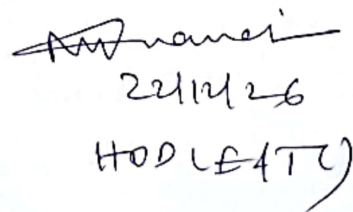 22/12/26
HOD (E&TC)